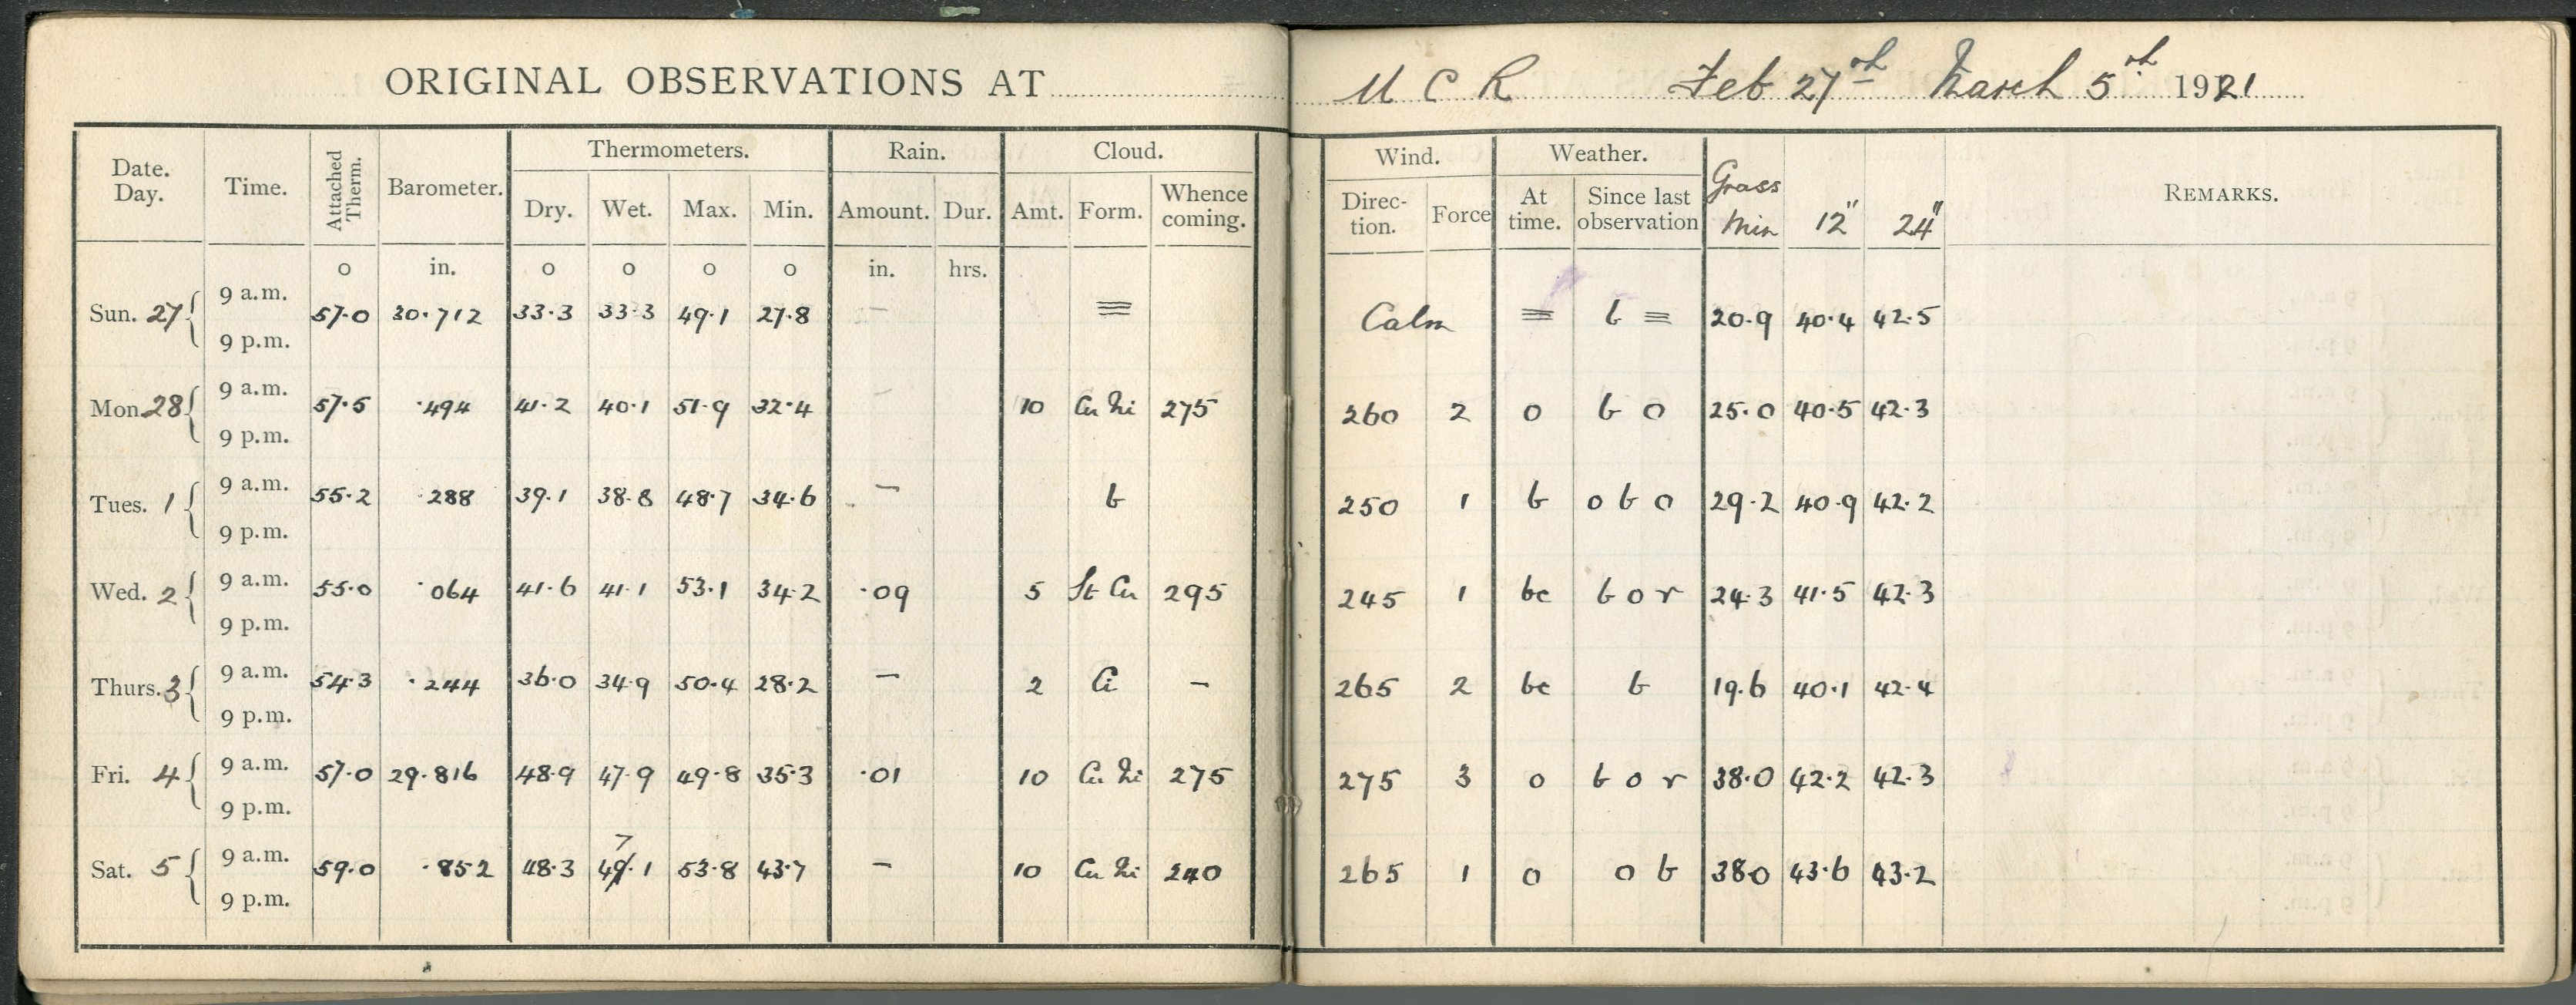 ORIGINAL OBSERVATIONS AT M C R Feb 27th March 5th 1921
Date. Day. Time. Attached Therm. Barometer. Thermometers. Rain. Cloud. Wind. Weather. Grass Min 12" 24" REMARKS.
Dry. Wet. Max. Min. Amount. Dur. Amt. Form. Whence coming. Direc-tion. Force At time. Since last observation
o in. o o o o in. hrs.
9 a.m.
Sun. 27 57.0 30.712 33.3 33.3 49.1 27.8 — ≡ Calm ≡ b ≡ 20.9 40.4 42.5
9 p.m.
9 a.m.
Mon 28 57.5 .494 41.2 40.1 51.9 32.4 — 10 Cu Ni 275 260 2 o b o 25.0 40.5 42.3
9 p.m.
9 a.m.
Tues. 1 55.2 288 39.1 38.8 48.7 34.6 — b 250 1 b o b o 29.2 40.9 42.2
9 p.m.
9 a.m.
Wed. 2 55.0 .064 41.6 41.1 53.1 34.2 .09 5 St Cu 295 245 1 bc b o r 24.3 41.5 42.3
9 p.m.
9 a.m.
Thurs. 3 54.3 .244 36.0 34.9 50.4 28.2 — 2 Ci — 265 2 bc b 19.6 40.1 42.4
9 p.m.
9 a.m.
Fri. 4 57.0 29.816 48.9 47.9 49.8 35.3 .01 10 Cu Ni 275 275 3 o b o r 38.0 42.2 42.3
9 p.m.
9 a.m.
Sat. 5 59.0 .852 48.3 47.1 53.8 43.7 — 10 Cu Ni 240 265 1 o o b 38.0 43.6 43.2
9 p.m.